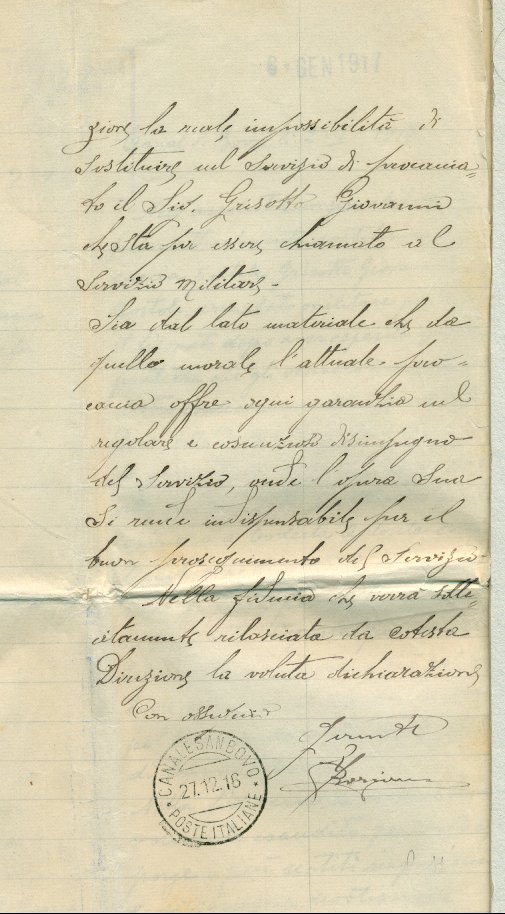 6 · GEN 1917
zione la reale impossibilità di
sostituire nel servizio di procaccia=
to il Sig. Grisotto Giovanni
che sta per essere chiamato al
Servizio Militare.
Sia dal lato materiale che da
quello morale l'attuale pro=
caccia offre ogni garanzia nel
regolare e coscienzioso disimpegno
del Servizio, onde l'opera sua
si rende indispensabile per il
buon proseguimento del Servizio.
Nella fiducia che verrà solle=
citamente rilasciata da cotesta
Direzione la voluta dichiarazione
Con ossequio
CANALE SAN BOVO
27.12.16
POSTE ITALIANE